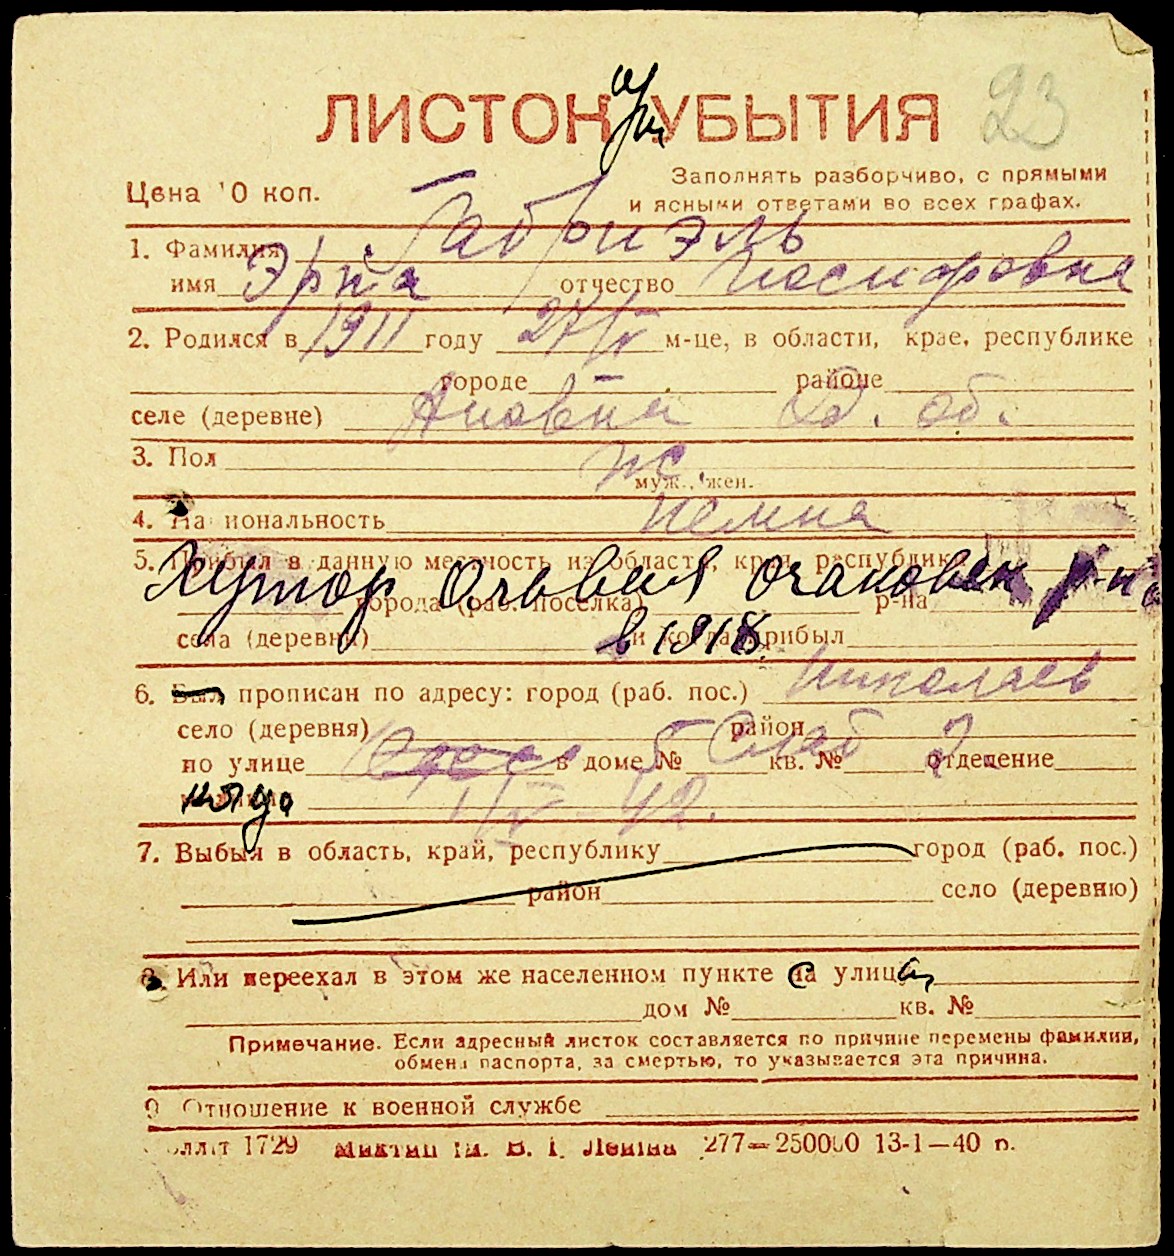 23
ЛИСТОК УБЫТИЯ
Цена 10 коп.
Заполнять разборчиво, с прямыми
и ясными ответами во всех графах.
1. Фамилия Габриэль
имя Эрна отчество Иосифовна
2. Родился в 1911 году 27/V м-це, в области, крае, республике
городе районе
селе (деревне) Од. об.
3. Пол ж.
муж., жен.
4. Национальность немка
5. Прибыл в данную местность из области, края, республики
Хутор Ольвия Очаковск р-на
города (раб. поселка) р-на
села (деревни) и когда прибыл в 1918
6. Был прописан по адресу: город (раб. пос.) Николаев
село (деревня) район
по улице 5 Слоб 2 в доме № кв. № отделение
1/V - 42.
7. Выбыл в область, край, республику город (раб. пос.)
район село (деревню)
8. Или переехал в этом же населенном пункте на улицу
дом № кв. №
Примечание. Если адресный листок составляется по причине перемены фамилии,
обмена паспорта, за смертью, то указывается эта причина.
9. Отношение к военной службе
1729 им. В. І. Леніна 277—250000 13-1—40 р.